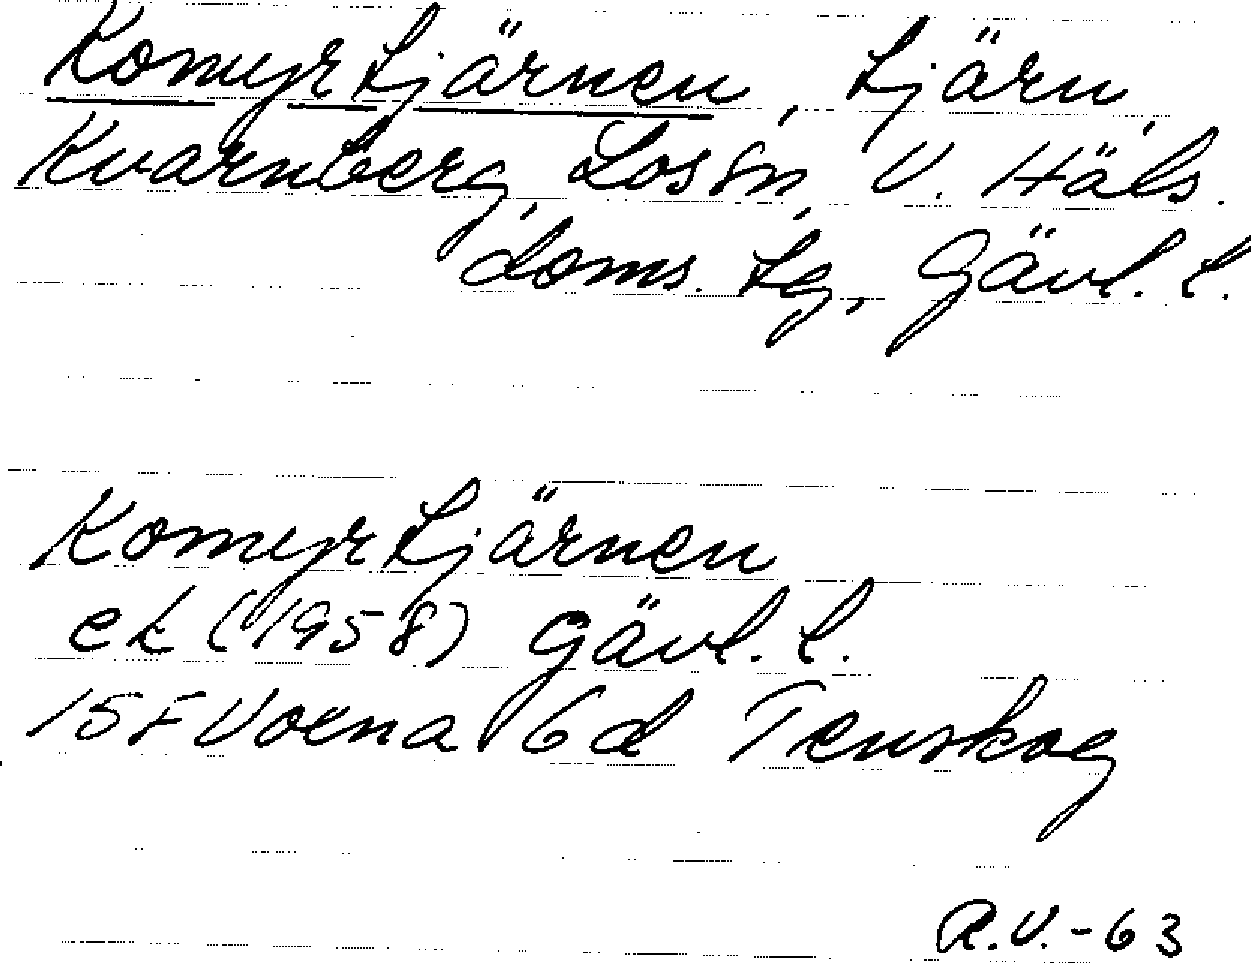 Komyrtjärnen, tjärn,
Kvarnberg, Los sn, V. Häls.
doms. tg, Gävl. l.
Komyrtjärnen
ek (1958) Gävl. l.
15F Voxna 6d Tenskog
R.V.-63